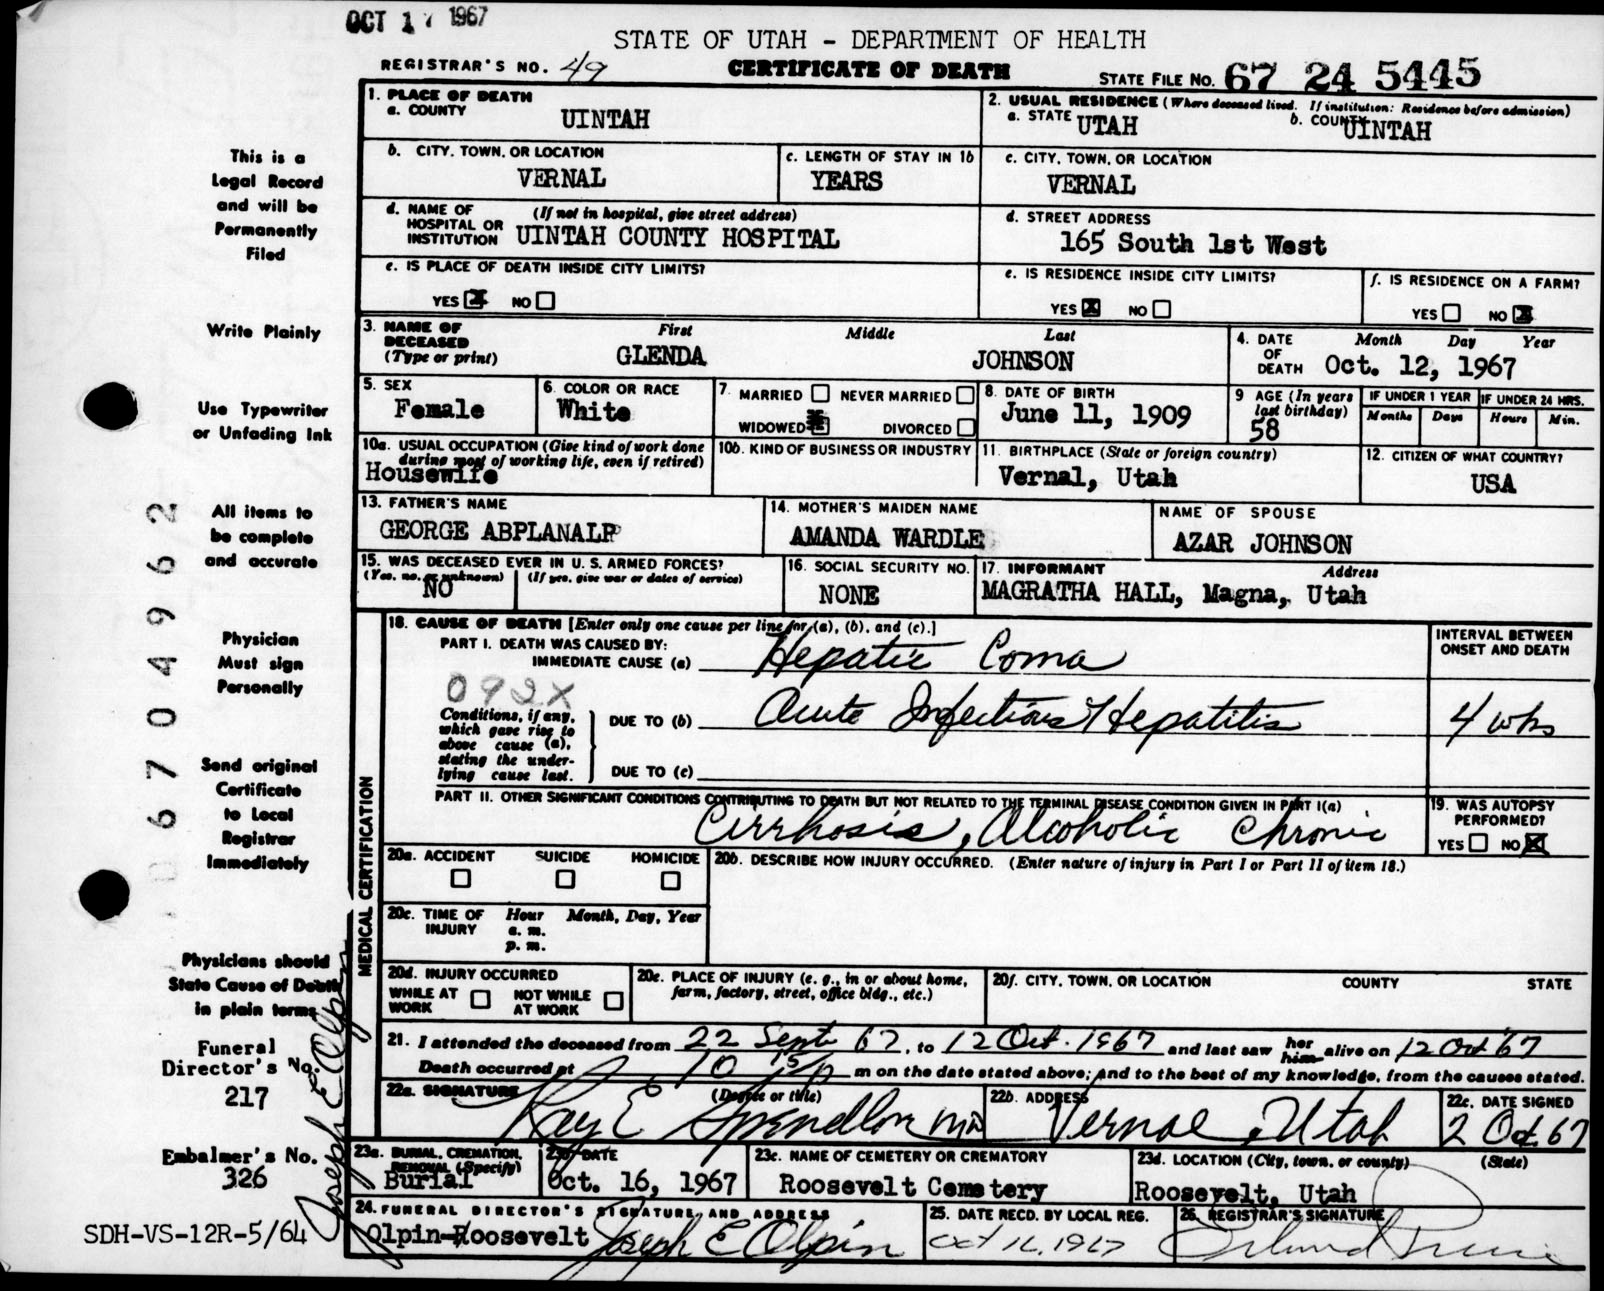 OCT 17 1967
STATE OF UTAH - DEPARTMENT OF HEALTH
REGISTRAR'S NO. 49 CERTIFICATE OF DEATH STATE FILE NO. 67 24 5445
This is a
Legal Record
and will be
Permanently
Filed
Write Plainly
Use Typewriter
or Unfading Ink
All items to
be complete
and accurate
Physician
Must sign
Personally
Send original
Certificate
to Local
Registrar
Immediately
Physicians should
State Cause of Death
in plain terms
Funeral
Director's No.
217
Embalmer's No.
326
SDH-VS-12R-5/64
067049962
Joseph E Olpin
1. PLACE OF DEATH
a. COUNTY UINTAH
2. USUAL RESIDENCE (Where deceased lived. If institution: Residence before admission)
a. STATE UTAH b. COUNTY UINTAH
b. CITY, TOWN, OR LOCATION VERNAL
c. LENGTH OF STAY IN 1b YEARS
c. CITY, TOWN, OR LOCATION VERNAL
d. NAME OF HOSPITAL OR INSTITUTION (If not in hospital, give street address) UINTAH COUNTY HOSPITAL
d. STREET ADDRESS 165 South 1st West
e. IS PLACE OF DEATH INSIDE CITY LIMITS?
YES X NO
e. IS RESIDENCE INSIDE CITY LIMITS?
YES X NO
f. IS RESIDENCE ON A FARM?
YES NO X
3. NAME OF DECEASED (Type or print) First Middle Last
GLENDA JOHNSON
4. DATE OF DEATH Month Day Year
Oct. 12, 1967
5. SEX Female
6. COLOR OR RACE White
7. MARRIED NEVER MARRIED
WIDOWED X DIVORCED
8. DATE OF BIRTH June 11, 1909
9 AGE (In years last birthday) 58
IF UNDER 1 YEAR Months Days
IF UNDER 24 HRS. Hours Min.
10a. USUAL OCCUPATION (Give kind of work done during most of working life, even if retired)
Housewife
10b. KIND OF BUSINESS OR INDUSTRY
11. BIRTHPLACE (State or foreign country)
Vernal, Utah
12. CITIZEN OF WHAT COUNTRY?
USA
13. FATHER'S NAME
GEORGE ABPLANALP
14. MOTHER'S MAIDEN NAME
AMANDA WARDLE
NAME OF SPOUSE
AZAR JOHNSON
15. WAS DECEASED EVER IN U. S. ARMED FORCES?
(Yes, no, or unknown) (If yes, give war or dates of service)
NO
16. SOCIAL SECURITY NO.
NONE
17. INFORMANT Address
MAGRATHA HALL, Magna, Utah
MEDICAL CERTIFICATION
18. CAUSE OF DEATH [Enter only one cause per line for (a), (b), and (c).]
PART I. DEATH WAS CAUSED BY:
IMMEDIATE CAUSE (a) Hepatic Coma
INTERVAL BETWEEN ONSET AND DEATH
092X
Conditions, if any,
which gave rise to
above cause (a),
stating the under-
lying cause last.
DUE TO (b) Acute Infectious Hepatitis 4 wks
DUE TO (c)
PART II. OTHER SIGNIFICANT CONDITIONS CONTRIBUTING TO DEATH BUT NOT RELATED TO THE TERMINAL DISEASE CONDITION GIVEN IN PART I(a)
Cirrhosis, Alcoholic Chronic
19. WAS AUTOPSY PERFORMED?
YES NO X
20a. ACCIDENT SUICIDE HOMICIDE
20b. DESCRIBE HOW INJURY OCCURRED. (Enter nature of injury in Part I or Part II of item 18.)
20c. TIME OF INJURY Hour Month, Day, Year
a. m.
p. m.
20d. INJURY OCCURRED
WHILE AT WORK NOT WHILE AT WORK
20e. PLACE OF INJURY (e. g., in or about home, farm, factory, street, office bldg., etc.)
20f. CITY, TOWN, OR LOCATION COUNTY STATE
21. I attended the deceased from 22 Sept 67, to 12 Oct. 1967 and last saw her him alive on 12 Oct 67
Death occurred at 10 15 p m on the date stated above; and to the best of my knowledge, from the causes stated.
22a. SIGNATURE (Degree or title)
Ray E Spendlove MD
22b. ADDRESS
Vernal, Utah
22c. DATE SIGNED
2 Oct 67
23a. BURIAL, CREMATION, REMOVAL (Specify)
Burial
23b. DATE
Oct. 16, 1967
23c. NAME OF CEMETERY OR CREMATORY
Roosevelt Cemetery
23d. LOCATION (City, town, or county) (State)
Roosevelt, Utah
24. FUNERAL DIRECTOR'S SIGNATURE AND ADDRESS
Olpin-Roosevelt Joseph E Olpin
25. DATE RECD. BY LOCAL REG.
Oct 16, 1967
26. REGISTRAR'S SIGNATURE